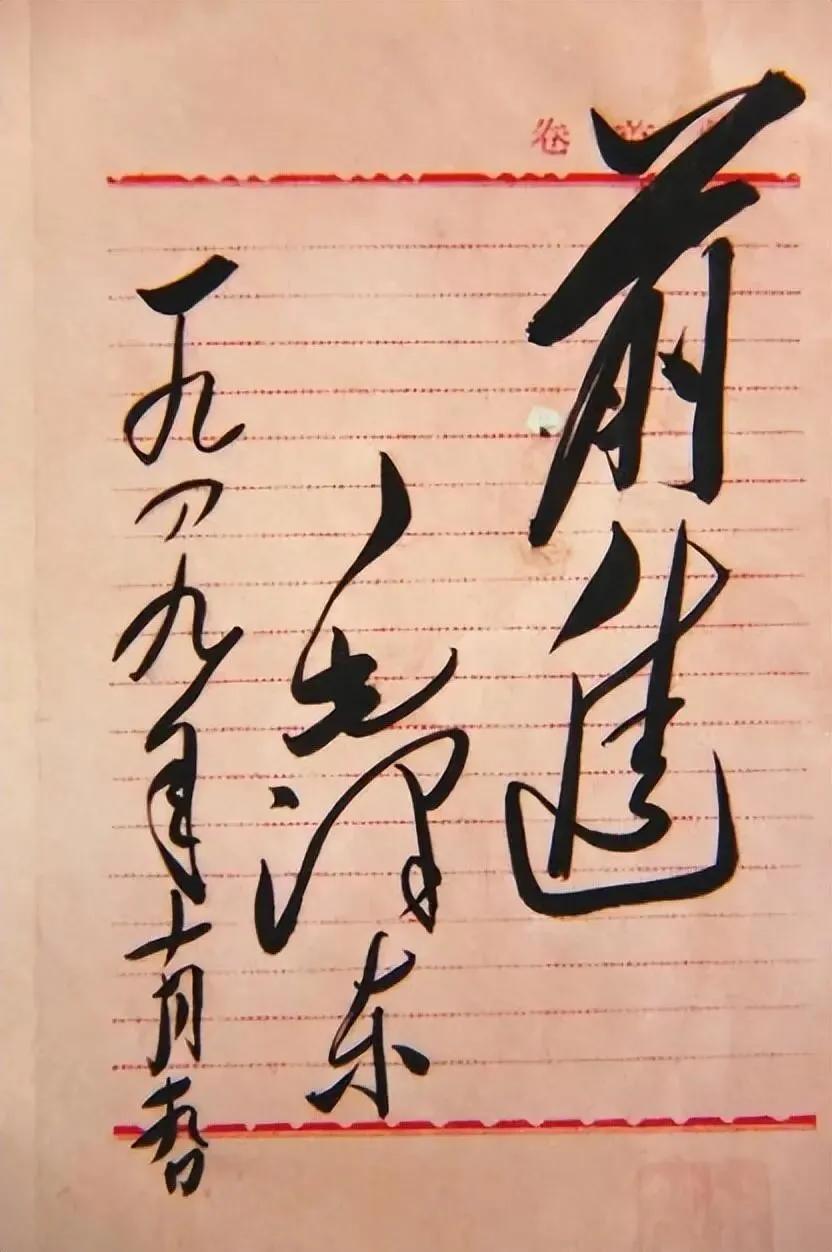 卷
前進
毛泽东
一九四九年十月十九日